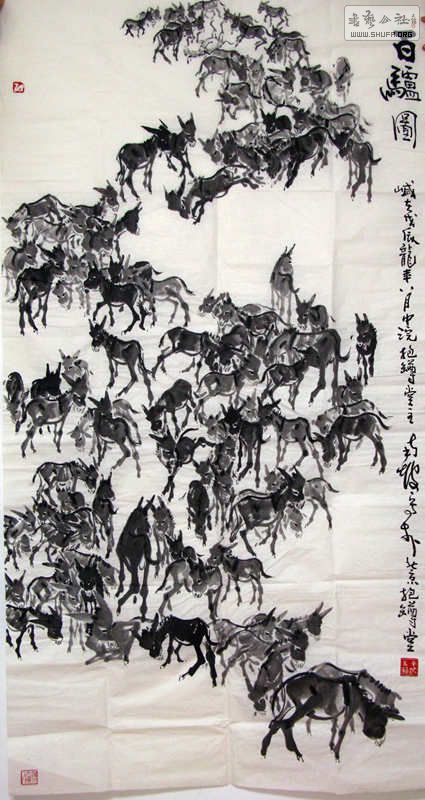 书艺公社
WWW.SHUFA.ORG
百驢圖
歲在戊辰龍年八月中浣抱罇堂主
京抱罇堂